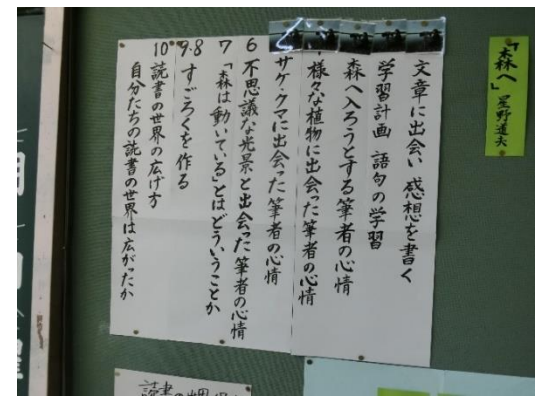 「森へ」 星野道夫
文章に出会い 感想を書く
学習計画 語句の学習
森へ入ろうとする筆者の心情
様々な植物に出会った筆者の心情
サケ・クマに出会った筆者の心情
6 不思議な光景と出会った筆者の心情
7 「森は動いている」とはどういうことか
9・8 すごろくを作る
10 読書の世界の広げ方
自分たちの読書の世界は広がったか
読書の世界